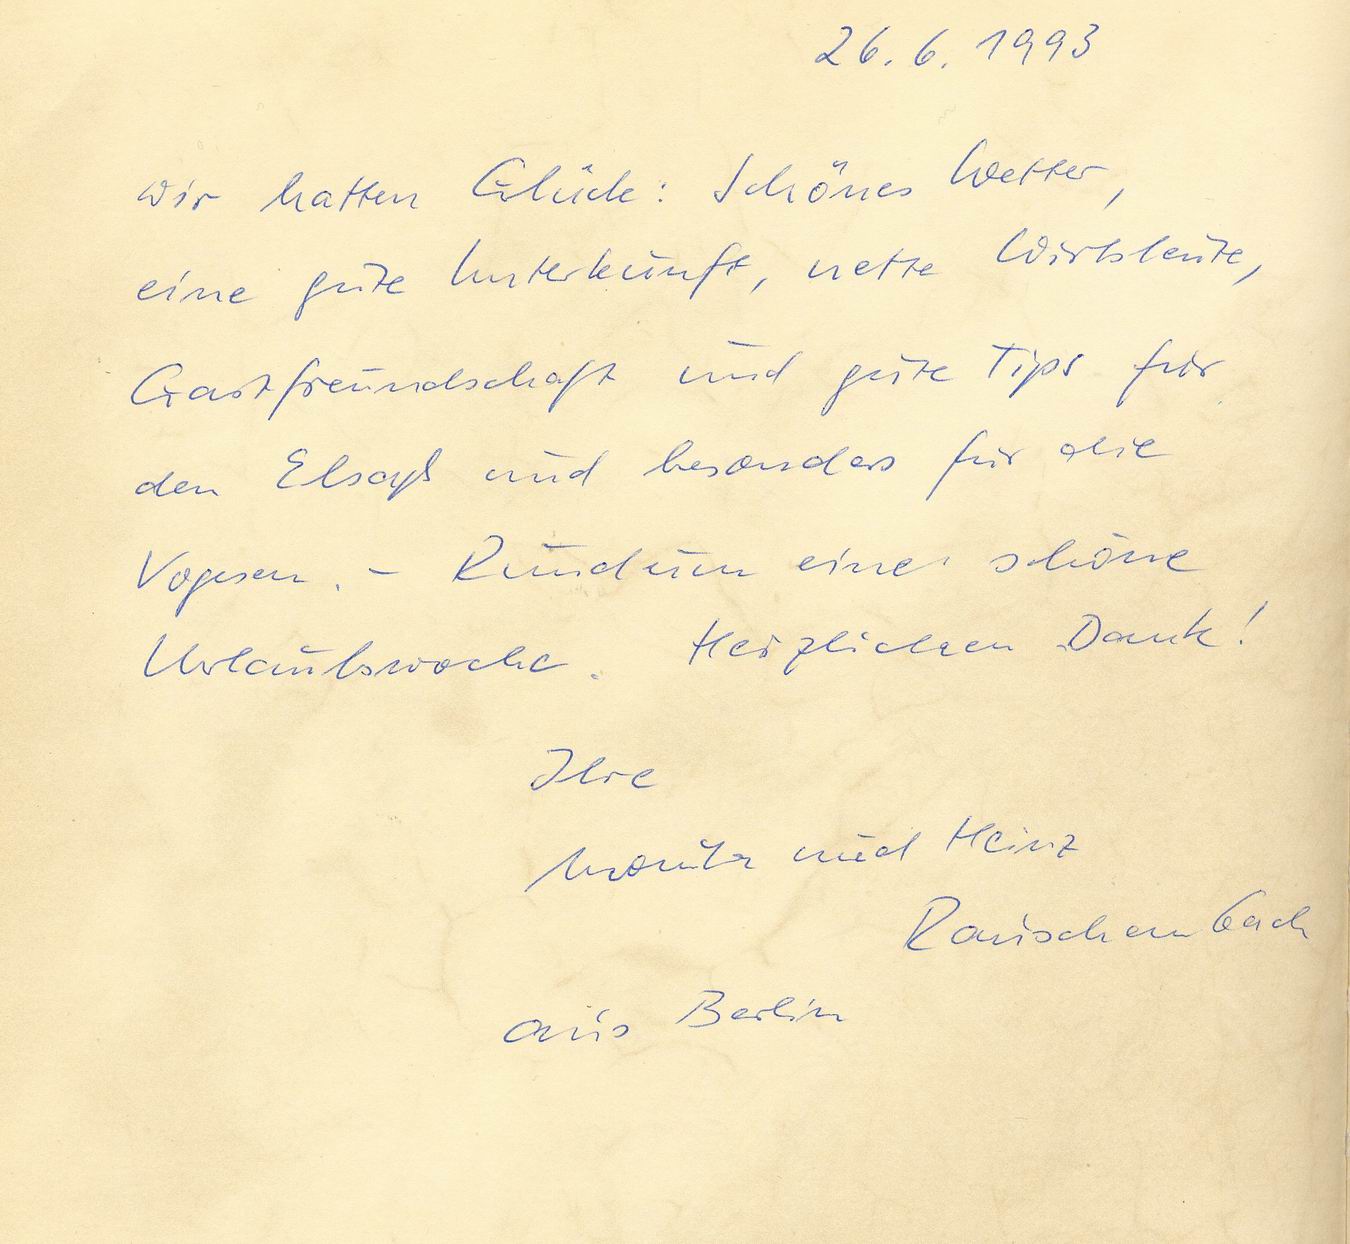 26.6.1993
Wir hatten Glück: Schönes Wetter,
eine gute Unterkunft, nette Wirtsleute,
Gastfreundschaft und gute Tips für
den Elsaß und besonders für die
Vogesen. – Rundum eine schöne
Urlaubswoche. Herzlichen Dank!
Ihre
Monika und Heinz
Rauschenbach
aus Berlin